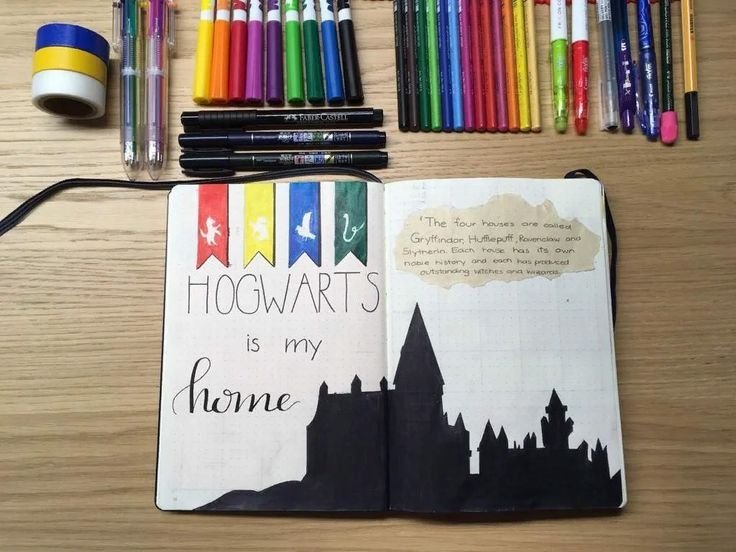 FABER-CASTELL
HOGWARTS
is my
home
'The four houses are called
Gryffindor, Hufflepuff, Ravenclaw and
Slytherin. Each house has its own
noble history and each has produced
outstanding witches and wizards.